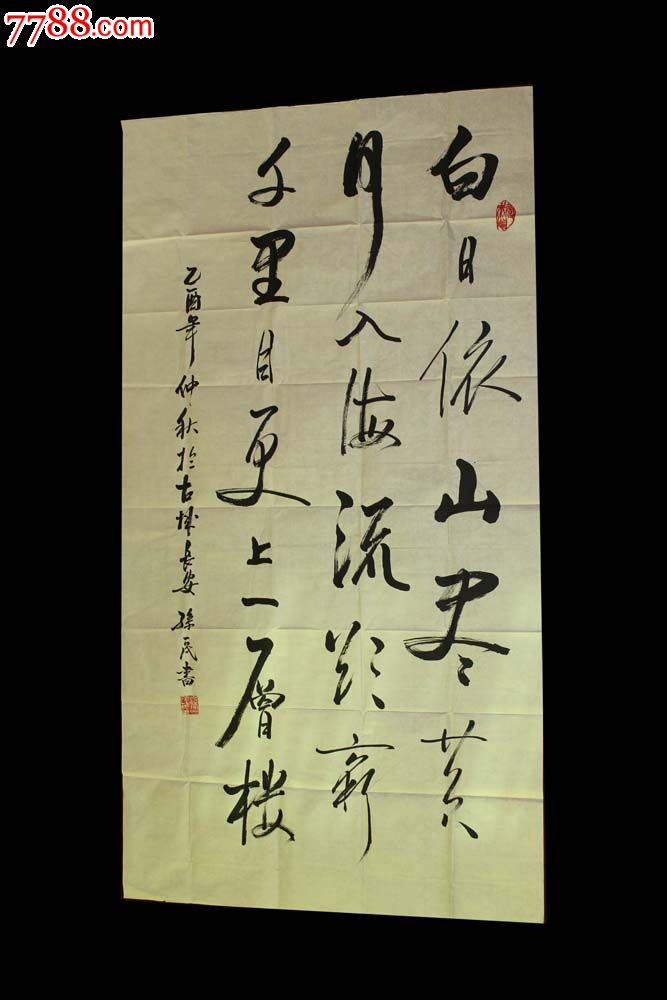 7788.com
白日依山尽黄
河入海流欲窮
千里目更上一層楼
乙酉年仲秋於古城長安 孫民書